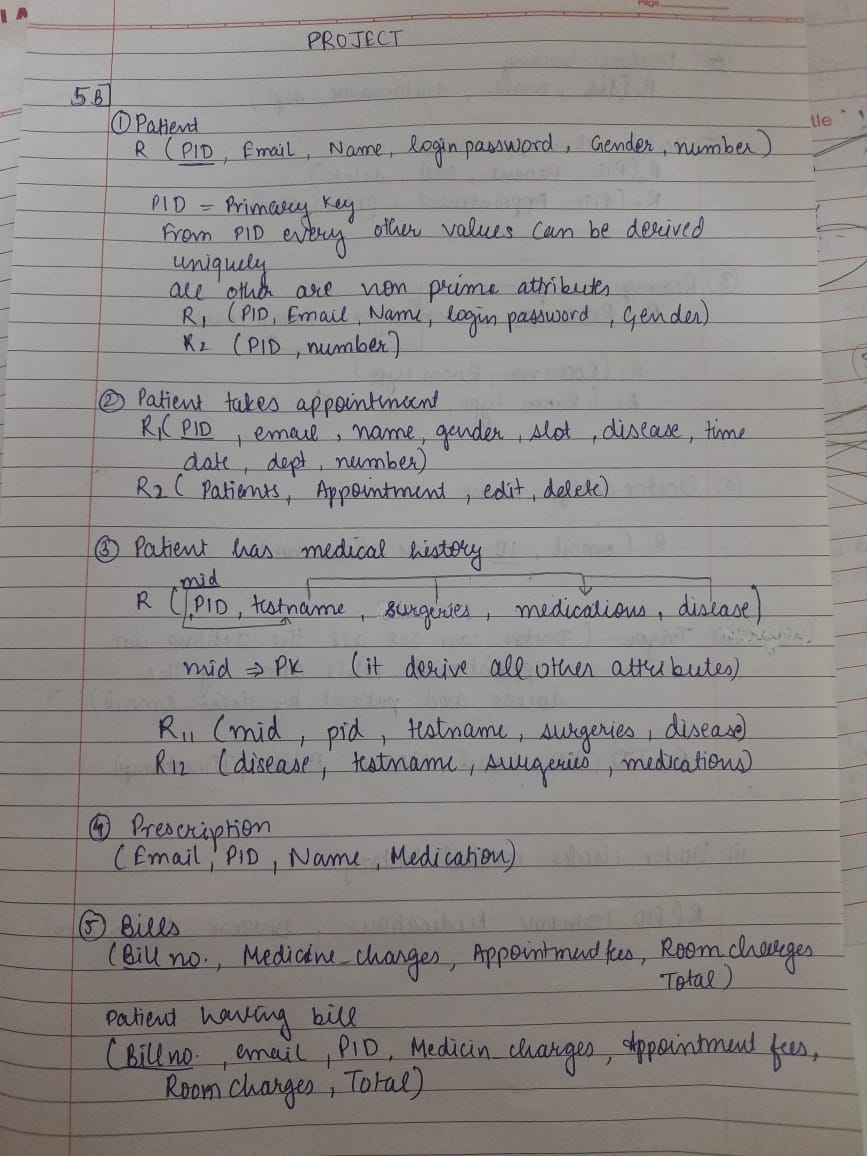 Page
PROJECT
5.B]
① Patient
R (PID, Email, Name, login password, Gender, number)
PID = Primary Key
From PID every other values can be derived
uniquely
all other are non prime attributes
R1 (PID, Email, Name, login password, Gender)
R2 (PID, number)
② Patient takes appointment
R1( PID, email, name, gender, slot, disease, time
date, dept, number)
R2 ( Patients, Appointment, edit, delete)
③ Patient has medical history
mid
R ( PID, testname, surgeries, medications, disease)
mid ⇒ PK (it derive all other attributes)
R11 (mid, pid, testname, surgeries, disease)
R12 (disease, testname, surgeries, medications)
④ Prescription
(Email, PID, Name, Medication)
⑤ Bills
(Bill no., Medicine_charges, Appointment fees, Room charges
Total)
Patient having bill
(Bill no., email, PID, Medicin_charges, Appointment fees,
Room charges, Total)
tle